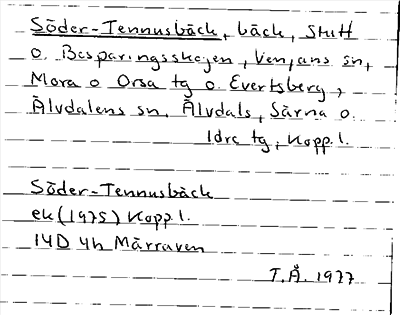 Söder-Tennusbäck, bäck, Stutt
o. Besparingsskogen, Venjans sn,
Mora o Orsa tg o. Evertsberg,
Älvdalens sn. Älvdals, Särna o.
Idre tg, Kopp. l.
Söder-Tennusbäck
ek (1975) Kopp. l.
14D 4h Märraven
T.Å. 1977